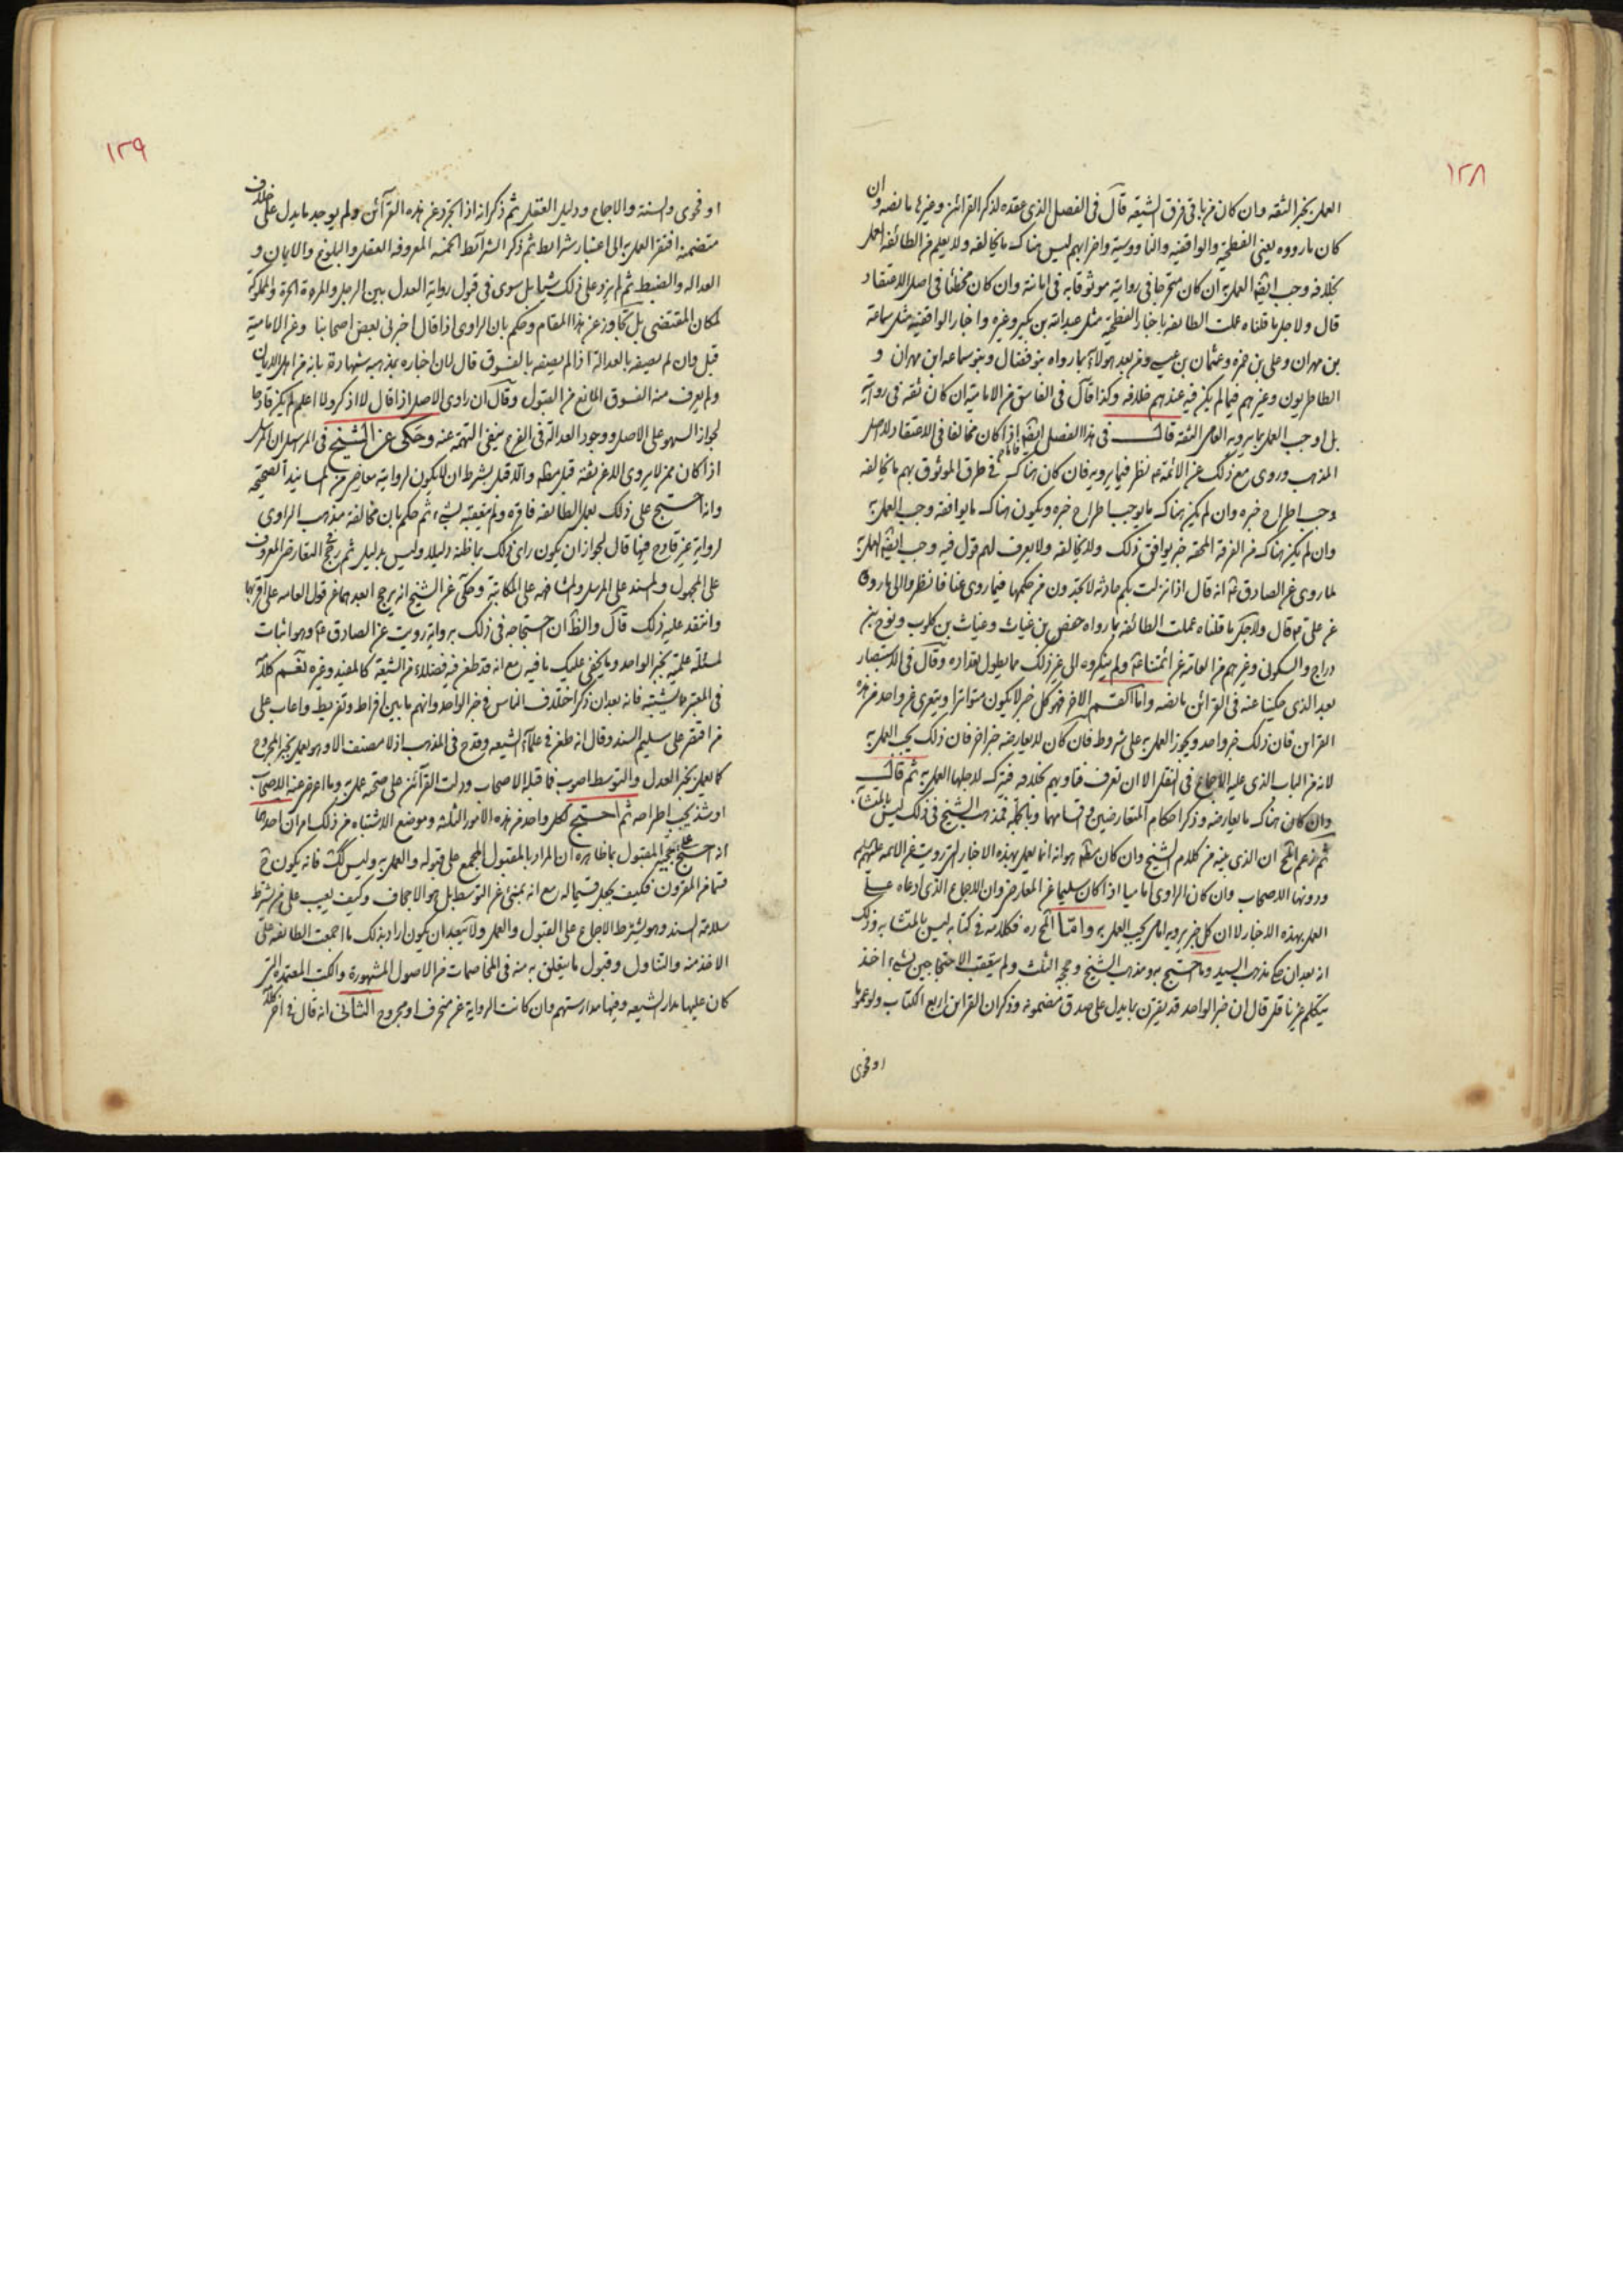 ١٢٨
العمل بخبر الثقه وان كان من باقى فرق الشيعه قال فى الفصل الذى عقده لذكر القرائن وغيرها ما نصه وان
كان ما رووه يعنى الفطحية والواقفيه والناووسية واضرابهم ليس هناك ما يخالفه ولا يعلم من الطائفه العمل
بخلافه وجب ايضا العمل به ان كان متحرجا فى روايته موثوقا به فى امانته وان كان مخطئا فى اصل الاعتقاد
قال ولاجل ما قلناه عملت الطائفه باخبار الفطحية مثل عبد الله بن بكير وغيره واخبار الواقفيه مثل سماعة
بن مهران وعلى بن حمزه وعثمان بن عيسى ومن بعد هولاء بما رواه بنو فضال وبنو سماعه ابن مهران و
الطاطريون وغيرهم فيما لم يكن فيه عندهم خلافه وكذا قال فى الفاسق من الامامية ان كان ثقه فى روايته
بل اوجب العمل بما يرويه العامى الثقه قال فى هذا الفصل ايضا اذا كان مخالفا فى الاعتقاد لاصل
المذهب وروى مع ذلك عن الائمة ع نظر فيما يرويه فان كان هناك فى طرق الموثوق بهم ما يخالفه
وجب اطراح خبره وان لم يكن هناك ما يوجب اطراح خبره ويكون هناك ما يوافقه وجب العمل به
وان لم يكن هناك من الفرقة المحقة خبر يوافق ذلك ولا يخالفه ولا يعرف لهم قول فيه وجب ايضا العمل به
لما روى عن الصادق ع انه قال اذا نزلت بكم حادثه لا تجدون من حكمها فيما روى عنا فانظروا الى ما رووه
عن على ع قال ولاجل ما قلناه عملت الطائفه بما رواه حفص بن غياث وغياث بن كلوب ونوح بن
دراج والسكونى وغيرهم من العامة عن ائمتنا ع ولم ينكروه الى غير ذلك مما يطول بقداره وقال فى الاستبصار
بعد الذى حكينا عنه فى القرائن ما نصه واما القسم الاخر فهو كل خبر لا يكون متواترا ويتعرى عن واحد من هذه
القراين فان ذلك خبر واحد ويجوز العمل به على شروط فان كان لا يعارضه خبر اخر فان ذلك يجب العمل به
لانه من الباب الذى عليه الاجماع فى النقل الا ان تعرف فتاويهم بخلافه فيترك لاجلها العمل به ثم قال
وان كان هناك ما يعارضه وذكر احكام المتعارضين واقسامهما وبالجملة فمذهب الشيخ فى ذلك ليس بالمتشابه
ثم زعم المح ان الذى يبينه من كلام الشيخ وان كان مظ هو انه انما يعمل بهذه الاخبار التى رويت عن الائمه عليهم السلم
ودونها الاصحاب وان كان الراوى اماميا اذا كان سليما عن المعارض وان الاجماع الذى ادعاه على
العمل بهذه الاخبار لا ان كل خبر يرويه امامى يجب العمل به وامّا المح ره فكلامه فى كتابه ليس بالمتشابه وذلك
انه بعد ان حكى مذهب السيد وما احتج به ومذهب الشيخ وحججه الثلث ولم يتعقب الاحتجاجين بشىء اخذ
يتكلم عن يا قلم قال ان خبر الواحد قد يقترن بما يدل على صدق مضمونه وذكر ان القراين اربع الكتاب ولو عموما
او فحوى
١٢٩
او فحوى والسنة والاجماع ودليل العقل ثم ذكر انه اذا تجرد عن هذه القرآئن ولم يوجد ما يدل على خلاف
متضمنه افتقر العمل به الى اعتبار شرايط ثم ذكر الشرآئط الخمسه المعروفه العقل والبلوغ والايمان و
العدالة والضبط ثم لم يزد على ذلك شيئا بل سوى فى قبول رواية العدل بين الرجل والمرءة الحرة والمملوكة
لمكان المقتضى بل تجاوز عن هذا المقام وحكم بان الراوى اذا قال اخبرنى بعض اصحابنا وعن الامامية
قبل وان لم يصفه بالعدالة اذا لم يصفه بالفسوق قال لان اخباره بمذهبه شهادة بانه من اهل الامانة
ولم يعرف منه الفسوق المانع من القبول وقال ان راوى الاصل اذا قال لا اذكر ولا اعلم لم يكن قادحا
لجواز السهو على الاصل ووجود العدالة فى الفرع ينفى التهمة عنه وحكى عن الشيخ فى المرسل ان المرسل
اذا كان ممن لا يروى الا عن ثقة قبل مطلقا والا قبل بشرط ان لا يكون لروايته معارض من المسانيد الصحيحه
وانه احتج على ذلك بعمل الطائفه فاقره ولم يتعقبه بشىء ثم حكم بان مخالفة مذهب الراوى
لروايته غير قادح فيها قال لجواز ان يكون راى ذلك بما ظنه دليلا وليس بدليل ثم رجح التعارض المعروف
على المجهول والمسند على المرسل والمشافهه على المكاتبة وحكى عن الشيخ انه يرجح ابعدهما عن قول العامه على اقربهما
وانتقد عليه ذلك قال والظ ان احتجاجه فى ذلك برواية رويت عن الصادق ع وهو اثبات
لمسئلة علمية بخبر الواحد وما يخفى عليك ما فيه مع انه قد طعن فيه فضلاء من الشيعة كالمفيد وغيره نعم كلامه
فى المعتبر مما يشتبه فانه بعد ان ذكر اختلاف الناس فى خبر الواحد وانهم ما بين افراط وتفريط واعاب على
من اقتصر على سليم السند وقال انه طعن فى علماء الشيعه وقدح فى المذهب اذ لا مصنف الا وهو يعمل بخبر المجروح
كما يعمل بخبر العدل والتوسط اصوب فما قبله الاصحاب ودلت القرآئن على صحته عمل به وما اعرض عنه الاصحاب
او شذ يجب اطراحه ثم احتج لكل واحد من هذه الامور الثلثه وموضع الاشتباه من ذلك امران احدهما
انه احتج على حجية المقبول بما ظاهره ان المراد بالمقبول المجمع على قبوله والعمل به وليس كك فانه يكون ح
قسما من المقرون فكيف يجعل قسيما له مع انه بمنى عن التوسط بل هو الاجحاف وكيف يعيب على من شرط
سلامة السند وهو يشترط الاجماع على القبول والعمل ولا يبعد ان يكون اراد بذلك ما اجمعت الطائفه على
الاخذ منه والتناول وقبول ما يتعلق به منه فى المخاصمات من الاصول المشهورة والكتب المعتمدة التى
كان عليها مدار الشيعه وفيها مدارستهم وان كانت الرواية عن منحرف او مجروح الثانى انه قال فى اخر كلامه